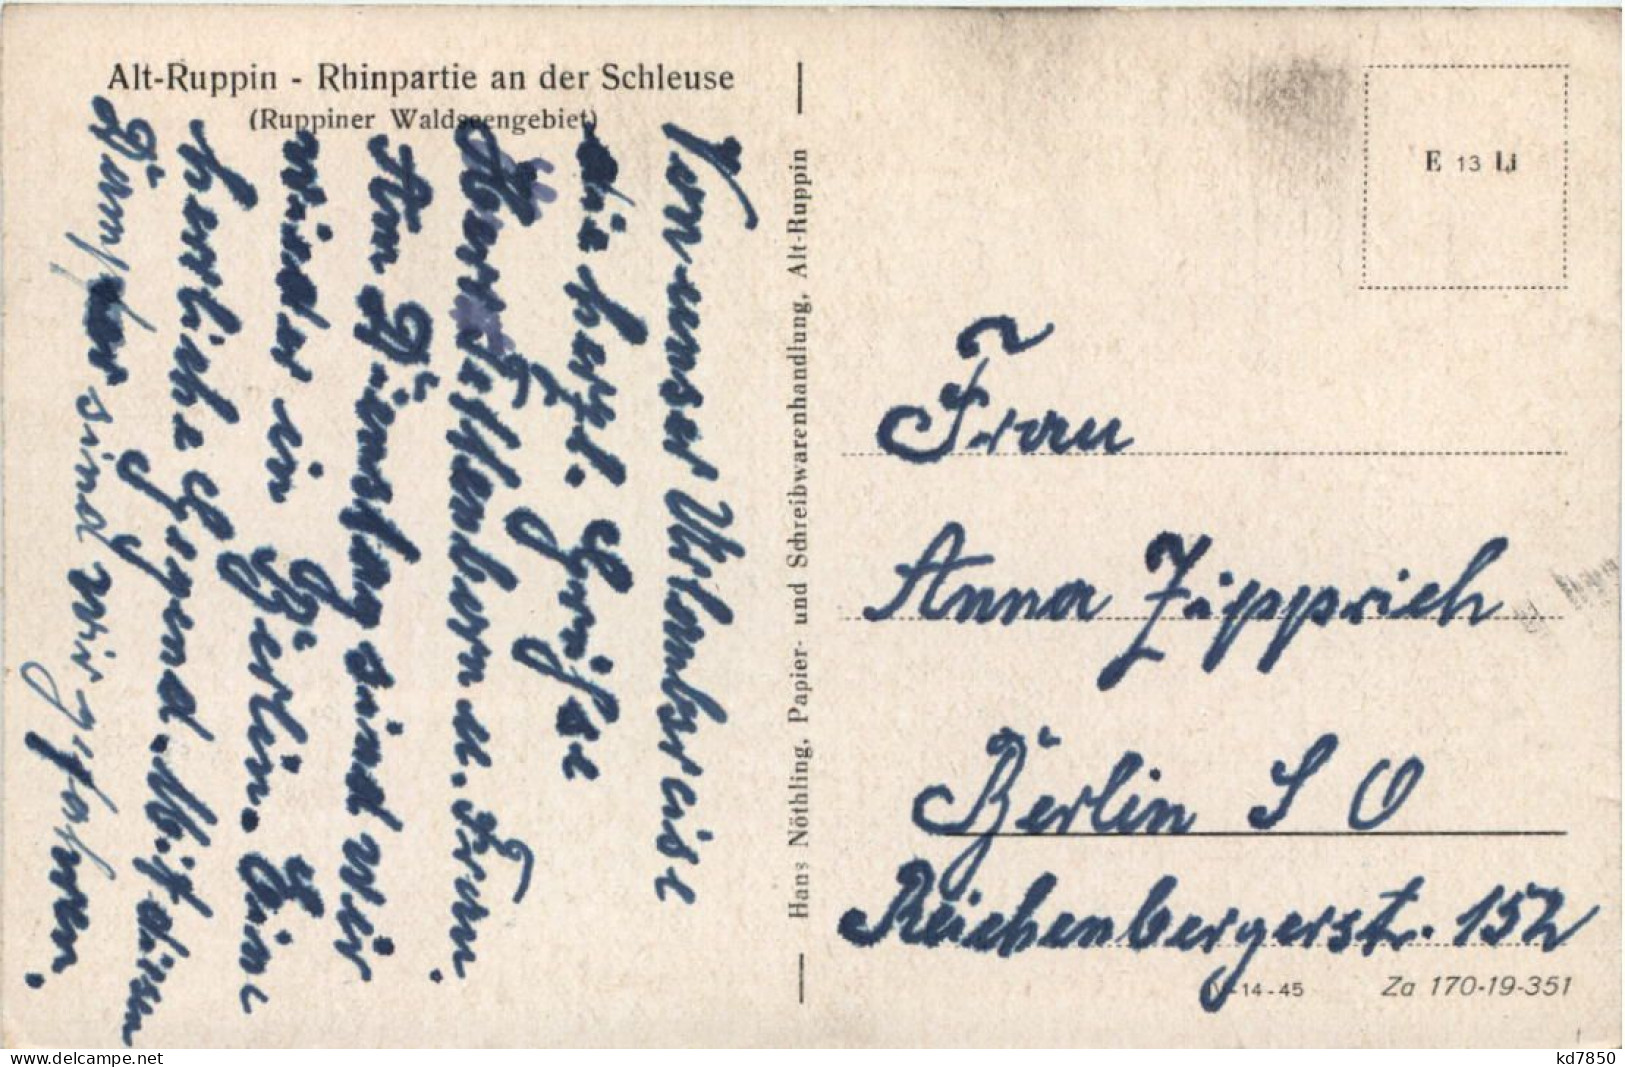 Alt-Ruppin - Rhinpartie an der Schleuse
(Ruppiner Waldseengebiet)
Von unser Urlaubsreise
die herzl. Grüße
Herr u. Frau.
Am Dienstag sind wir
wieder in Berlin. Eine
herrliche Gegend. Mit diesen
Dampfer sind wir gefahren.
Hans Nöthling, Papier- und Schreibwarenhandlung, Alt-Ruppin
E 13 Li
Frau
Anna Zipprich
Berlin S O
Reichenbergerstr. 152
IV-14-45
Za 170-19-351
kd7850